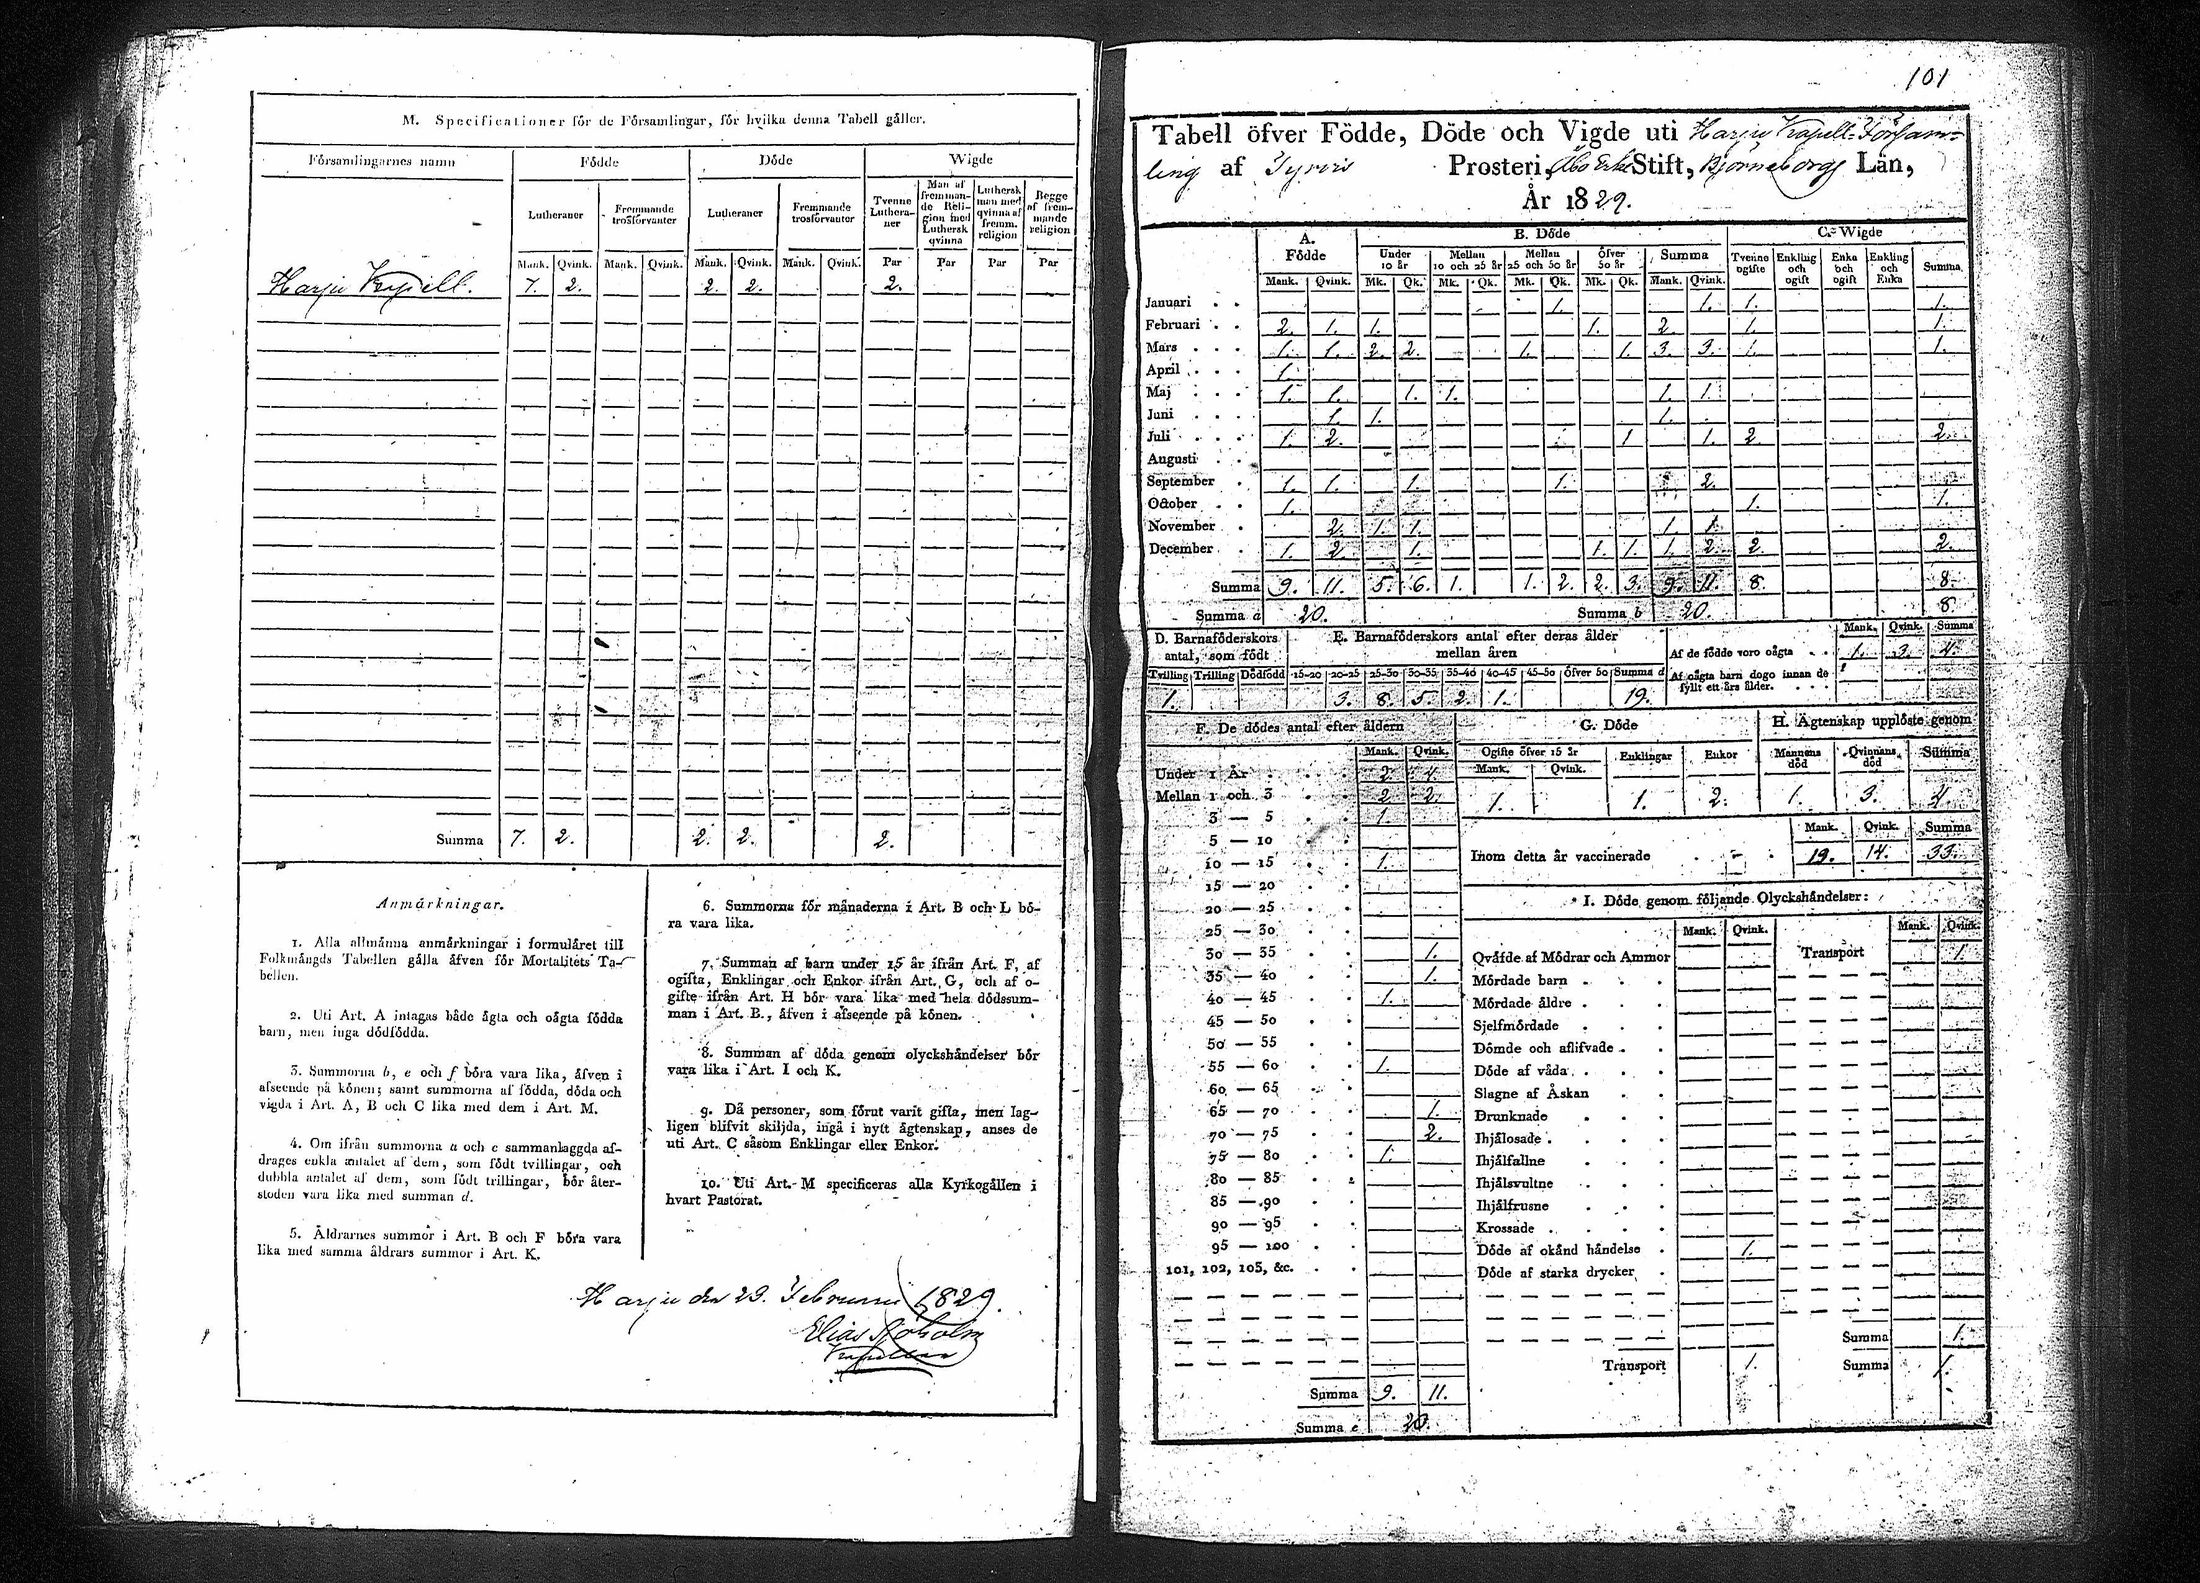 M. Specificationer för de Församlingar, för hvilka denna Tabell gäller.
Församlingarnes namn Födde Döde Wigde
Lutheraner Fremmande trosförvanter Lutheraner Fremmande trosförvanter Tvenne Lutheraner Man af fremmande Religion med Luthersk qvinna Luthersk man med qvinna af fremm. religion Begge af fremmande religion
Mank. Qvink. Mank. Qvink. Mank. Qvink. Mank. Qvink. Par Par Par Par
Harju Kapell. 7. 2. 2. 2. 2.
Summa 7. 2. 2. 2. 2.
Anmärkningar.
1. Alla allmänna anmärkningar i formuläret till
Folkmängds Tabellen gälla äfven för Mortalitets Ta-
bellen.
2. Uti Art. A intagas både ägta och oägta födda
barn, men inga dödfödda.
3. Summorna b, e och f böra vara lika, äfven i
afseende på könen; samt summorna af födda, döda och
vigda i Art. A, B och C lika med dem i Art. M.
4. Om ifrån summorna a och c sammanlaggda af-
drages enkla antalet af dem, som födt tvillingar, och
dubbla antalet af dem, som födt trillingar, bör åter-
stoden vara lika med summan d.
5. Åldrarnes summor i Art. B och F böra vara
lika med samma åldrars summor i Art. K.
6. Summorna för månaderna i Art. B och L bö-
ra vara lika.
7. Summan af barn under 15 år ifrån Art. F, af
ogifta, Enklingar och Enkor ifrån Art. G, och af o-
gifte ifrån Art. H bör vara lika med hela dödssum-
man i Art. B., äfven i afseende på könen.
8. Summan af döda genom olyckshändelser bör
vara lika i Art. I och K.
9. Då personer, som förut varit gifta, men lag-
ligen blifvit skiljda, ingå i nytt ägtenskap, anses de
uti Art. C såsom Enklingar eller Enkor.
10. Uti Art. M specificeras alla Kyrkogällen i
hvart Pastorat.
Harju den 23. Februarii 1829.
Elias Sjöholm
Kapellan
101
Tabell öfver Födde, Döde och Vigde uti Harju Kapell-Försam-
ling af Tyrvis Prosteri, Åbo Erke Stift, Björneborgs Län,
År 1829.
A. Födde B. Döde C. Wigde
Under 10 år Mellan 10 och 25 år Mellan 25 och 50 år Öfver 50 år Summa Tvenne ogifte Enkling och ogift Enka och ogift Enkling och Enka Summa
Mank. Qvink. Mk. Qk. Mk. Qk. Mk. Qk. Mk. Qk. Mank. Qvink.
Januari 1. 1. 1. 1.
Februari 2. 1. 1. 1. 2. 1. 1.
Mars 1. 1. 2. 2. 1. 1. 3. 3. 1. 1.
April 1.
Maj 1. 1. 1. 1. 1. 1.
Juni 1. 1. 1.
Juli 1. 2. 1 1. 2 2.
Augusti
September 1. 1. 1. 1. 2.
October 1. 1. 1.
November 2. 1. 1. 1. 1.
December 1. 2 1. 1. 1. 1. 2 2. 2.
Summa 9. 11. 5. 6. 1. 1. 2. 2. 3. 9. 11. 8. 8.
Summa a 20. Summa b 20. 8.
D. Barnaföderskors antal, som födt
Tvilling Trilling Dödfödd
1.
E. Barnaföderskors antal efter deras ålder mellan åren
15-20 20-25 25-30 30-35 35-40 40-45 45-50 öfver 50 Summa d
3. 8. 5. 2. 1. 19.
Mank. Qvink. Summa
Af de födde voro oägta 1. 3. 4.
Af oägta barn dogo innan de fyllt ett års ålder.
F. De dödes antal efter åldern
Mank. Qvink.
Under 1 År 2 4.
Mellan 1 och 3 2. 2.
3 — 5 1.
5 — 10
10 — 15 1.
15 — 20
20 — 25
25 — 30
30 — 35 1.
35 — 40 1.
40 — 45 1.
45 — 50
50 — 55
55 — 60 1.
60 — 65
65 — 70 1.
70 — 75 2.
75 — 80 1.
80 — 85
85 — 90
90 — 95
95 — 100
101, 102, 103, &c.
Summa 9. 11.
Summa e 20.
G. Döde
Ogifte öfver 15 år Enklingar Enkor
Mank. Qvink.
1. 1. 2.
H. Ägtenskap upplöste genom
Mannens död Qvinnans död Summa
1. 3. 4.
Mank. Qvink. Summa
Inom detta år vaccinerade 19. 14. 33.
I. Döde genom följande Olyckshändelser:
Mank. Qvink. Mank. Qvink.
Qväfde af Mödrar och Ammor Transport 1.
Mördade barn
Mördade äldre
Sjelfmördade
Dömde och aflifvade
Döde af våda
Slagne af Åskan
Drunknade
Ihjälosade
Ihjälfallne
Ihjälsvultne
Ihjälfrusne
Krossade
Döde af okänd händelse 1.
Döde af starka drycker
Summa 1.
Transport 1. Summa 1.